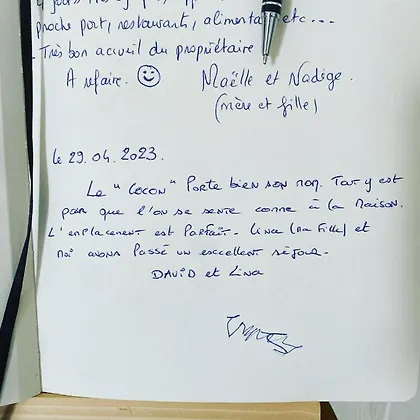 proche port, restaurants, alimentation etc...
- Très bon accueil du propriétaire
A refaire. Maëlle et Nadège.
(mère et fille)
le 29.04.2023.
Le "COCON" Porte bien son nom. Tout y est
pour que l'on se sente comme à la maison.
L'emplacement est Parfait. Lina (ma fille) et
moi avons Passé un excellent séjour.
DAVID et Lina